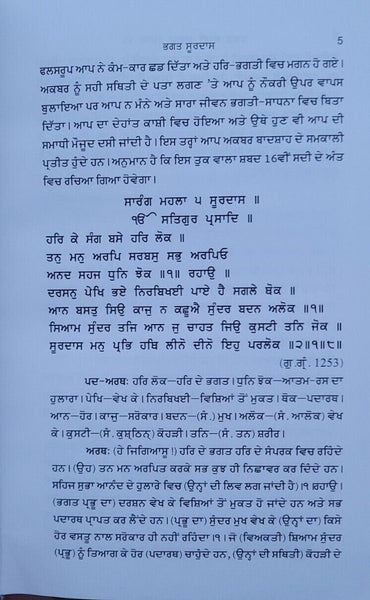 ਭਗਤ ਸੂਰਦਾਸ 5
ਫਲਸਰੂਪ ਆਪ ਨੇ ਕੰਮ-ਕਾਰ ਛਡ ਦਿੱਤਾ ਅਤੇ ਹਰਿ-ਭਗਤੀ ਵਿਚ ਮਗਨ ਹੋ ਗਏ।
ਅਕਬਰ ਨੂੰ ਸਹੀ ਸਥਿਤੀ ਦੇ ਪਤਾ ਲਗਣ 'ਤੇ ਆਪ ਨੂੰ ਨੌਕਰੀ ਉਪਰ ਵਾਪਸ
ਬੁਲਾਇਆ ਪਰ ਆਪ ਨ ਮੰਨੇ ਅਤੇ ਸਾਰਾ ਜੀਵਨ ਭਗਤੀ-ਸਾਧਨਾ ਵਿਚ ਬਿਤਾ
ਦਿੱਤਾ। ਆਪ ਦਾ ਦੇਹਾਂਤ ਕਾਸ਼ੀ ਵਿਚ ਹੋਇਆ ਅਤੇ ਉਥੇ ਹੁਣ ਵੀ ਆਪ ਦੀ
ਸਮਾਧੀ ਮੌਜੂਦ ਦਸੀ ਜਾਂਦੀ ਹੈ। ਇਸ ਤਰ੍ਹਾਂ ਆਪ ਅਕਬਰ ਬਾਦਸ਼ਾਹ ਦੇ ਸਮਕਾਲੀ
ਪ੍ਰਤੀਤ ਹੁੰਦੇ ਹਨ। ਅਨੁਮਾਨ ਹੈ ਕਿ ਇਸ ਤੁਕ ਵਾਲਾ ਸ਼ਬਦ 16ਵੀਂ ਸਦੀ ਦੇ ਅੰਤ
ਵਿਚ ਰਚਿਆ ਗਿਆ ਹੋਵੇਗਾ।
ਸਾਰੰਗ ਮਹਲਾ ੫ ਸੂਰਦਾਸ ॥
ੴ ਸਤਿਗੁਰ ਪ੍ਰਸਾਦਿ ॥
ਹਰਿ ਕੇ ਸੰਗ ਬਸੇ ਹਰਿ ਲੋਕ ॥
ਤਨੁ ਮਨੁ ਅਰਪਿ ਸਰਬਸੁ ਸਭੁ ਅਰਪਿਓ
ਅਨਦ ਸਹਜ ਧੁਨਿ ਝੋਕ ॥੧॥ ਰਹਾਉ ॥
ਦਰਸਨੁ ਪੇਖਿ ਭਏ ਨਿਰਬਿਖਈ ਪਾਏ ਹੈ ਸਗਲੇ ਥੋਕ ॥
ਆਨ ਬਸਤੁ ਸਿਉ ਕਾਜੁ ਨ ਕਛੂਐ ਸੁੰਦਰ ਬਦਨ ਅਲੋਕ ॥੧॥
ਸਿਆਮ ਸੁੰਦਰ ਤਜਿ ਆਨ ਜੁ ਚਾਹਤ ਜਿਉ ਕੁਸਟੀ ਤਨਿ ਜੋਕ ॥
ਸੂਰਦਾਸ ਮਨੁ ਪ੍ਰਭਿ ਹਥਿ ਲੀਨੋ ਦੀਨੋ ਇਹੁ ਪਰਲੋਕ ॥੨॥੧॥੮॥
(ਗੁ.ਗ੍ਰੰ. 1253)
ਪਦ-ਅਰਥ: ਹਰਿ ਲੋਕ—ਹਰਿ ਦੇ ਭਗਤ। ਧੁਨਿ ਝੋਕ—ਆਤਮ-ਰਸ ਦਾ
ਹੁਲਾਰਾ। ਪੇਖਿ—ਵੇਖ ਕੇ। ਨਿਰਬਿਖਈ—ਵਿਸ਼ਿਆਂ ਤੋਂ ਮੁਕਤ। ਥੋਕ—ਪਦਾਰਥ।
ਆਨ—ਹੋਰ। ਕਾਜੁ—ਸਰੋਕਾਰ। ਬਦਨ—(ਸੰ.) ਮੁਖ। ਅਲੋਕ—(ਸੰ. ਆਲੋਕ) ਵੇਖ
ਕੇ। ਕੁਸਟੀ—(ਸੰ. ਕੁਸ਼੍ਠਿਨ੍) ਕੋਹੜੀ। ਤਨਿ—(ਸੰ. ਤਨ) ਸ਼ਰੀਰ।
ਅਰਥ: (ਹੇ ਜਿਗਿਆਸੂ!) ਹਰਿ ਦੇ ਭਗਤ ਹਰਿ ਦੇ ਸੰਪਰਕ ਵਿਚ ਰਹਿੰਦੇ
ਹਨ। (ਉਹ) ਤਨ ਮਨ ਅਰਪਿਤ ਕਰਕੇ ਸਭ ਕੁਝ ਹੀ ਨਿਛਾਵਰ ਕਰ ਦਿੰਦੇ ਹਨ।
ਸਹਿਜ ਸੁਭਾ ਆਨੰਦ ਦੇ ਹੁਲਾਰੇ ਵਿਚ (ਉਨ੍ਹਾਂ ਦੀ ਲਿਵ ਲਗ ਜਾਂਦੀ ਹੈ)।੧।ਰਹਾਉ।
(ਭਗਤ ਪ੍ਰਭੂ ਦਾ) ਦਰਸ਼ਨ ਵੇਖ ਕੇ ਵਿਸ਼ਿਆਂ ਤੋਂ ਮੁਕਤ ਹੋ ਜਾਂਦੇ ਹਨ ਅਤੇ ਸਭ
ਪਦਾਰਥ ਪ੍ਰਾਪਤ ਕਰ ਲੈਂਦੇ ਹਨ। (ਪ੍ਰਭੂ ਦਾ) ਸੁੰਦਰ ਮੁਖ ਵੇਖ ਕੇ (ਉਨ੍ਹਾਂ ਦਾ) ਕਿਸੇ
ਹੋਰ ਵਸਤੂ ਨਾਲ ਸਰੋਕਾਰ ਹੀ ਨਹੀਂ ਰਹਿੰਦਾ।੧। ਜੋ (ਵਿਅਕਤੀ) ਸ਼ਿਆਮ ਸੁੰਦਰ
(ਪ੍ਰਭੂ) ਨੂੰ ਤਿਆਗ ਕੇ ਹੋਰ (ਪਦਾਰਥ) ਚਾਹੁੰਦੇ ਹਨ, (ਉਨ੍ਹਾਂ ਦੀ ਸਥਿਤੀ) ਕੋਹੜੀ ਦੇ